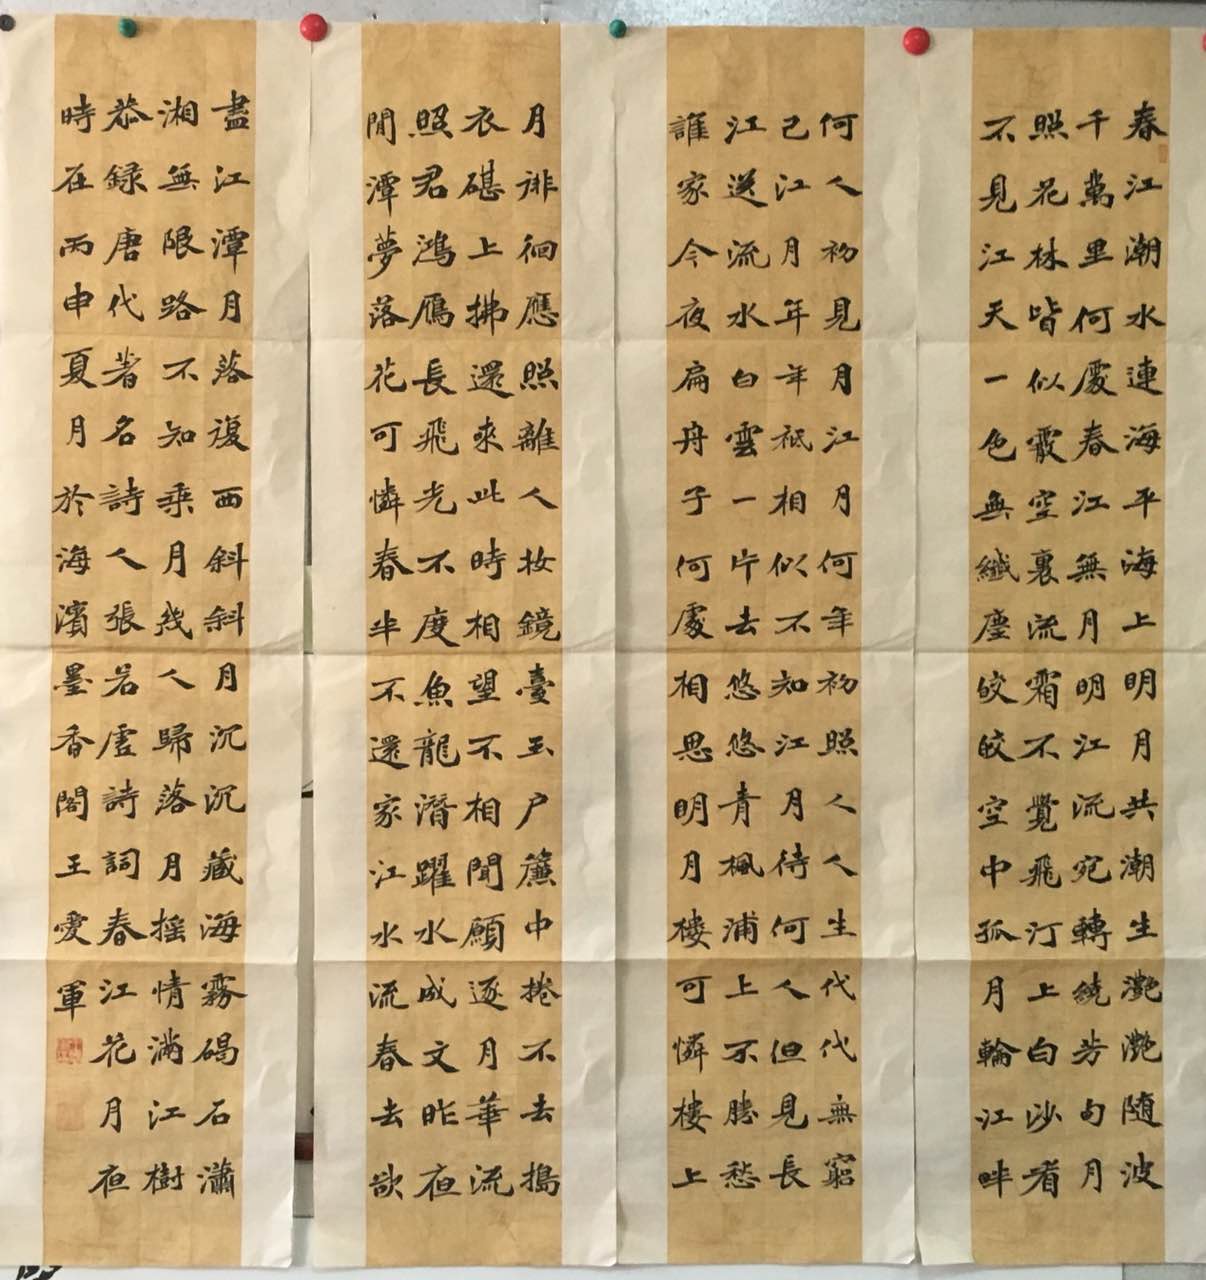 春江潮水連海平海上明月共潮生灧灧随波
千萬里何處春江無月明江流宛轉繞芳甸月
照花林皆似霰空裏流霜不覺飛汀上白沙看
不見江天一色無纖塵皎皎空中孤月輪江畔
何人初見月江月何年初照人人生代代無窮
已江月年年祗相似不知江月待何人但見長
江送流水白雲一片去悠悠青楓浦上不勝愁
誰家今夜扁舟子何處相思明月樓可憐樓上
月徘徊應照離人妝鏡臺玉户簾中捲不去搗
衣碪上拂還來此時相望不相聞願逐月華流
照君鴻雁長飛光不度魚龍潛躍水成文昨夜
閒潭夢落花可憐春半不還家江水流春去欲
盡江潭月落復西斜斜月沉沉藏海霧碣石瀟
湘無限路不知乘月幾人歸落月摇情滿江樹
恭録唐代著名詩人張若虚詩詞春江花月夜
時在丙申夏月於海濱墨香閣王愛軍